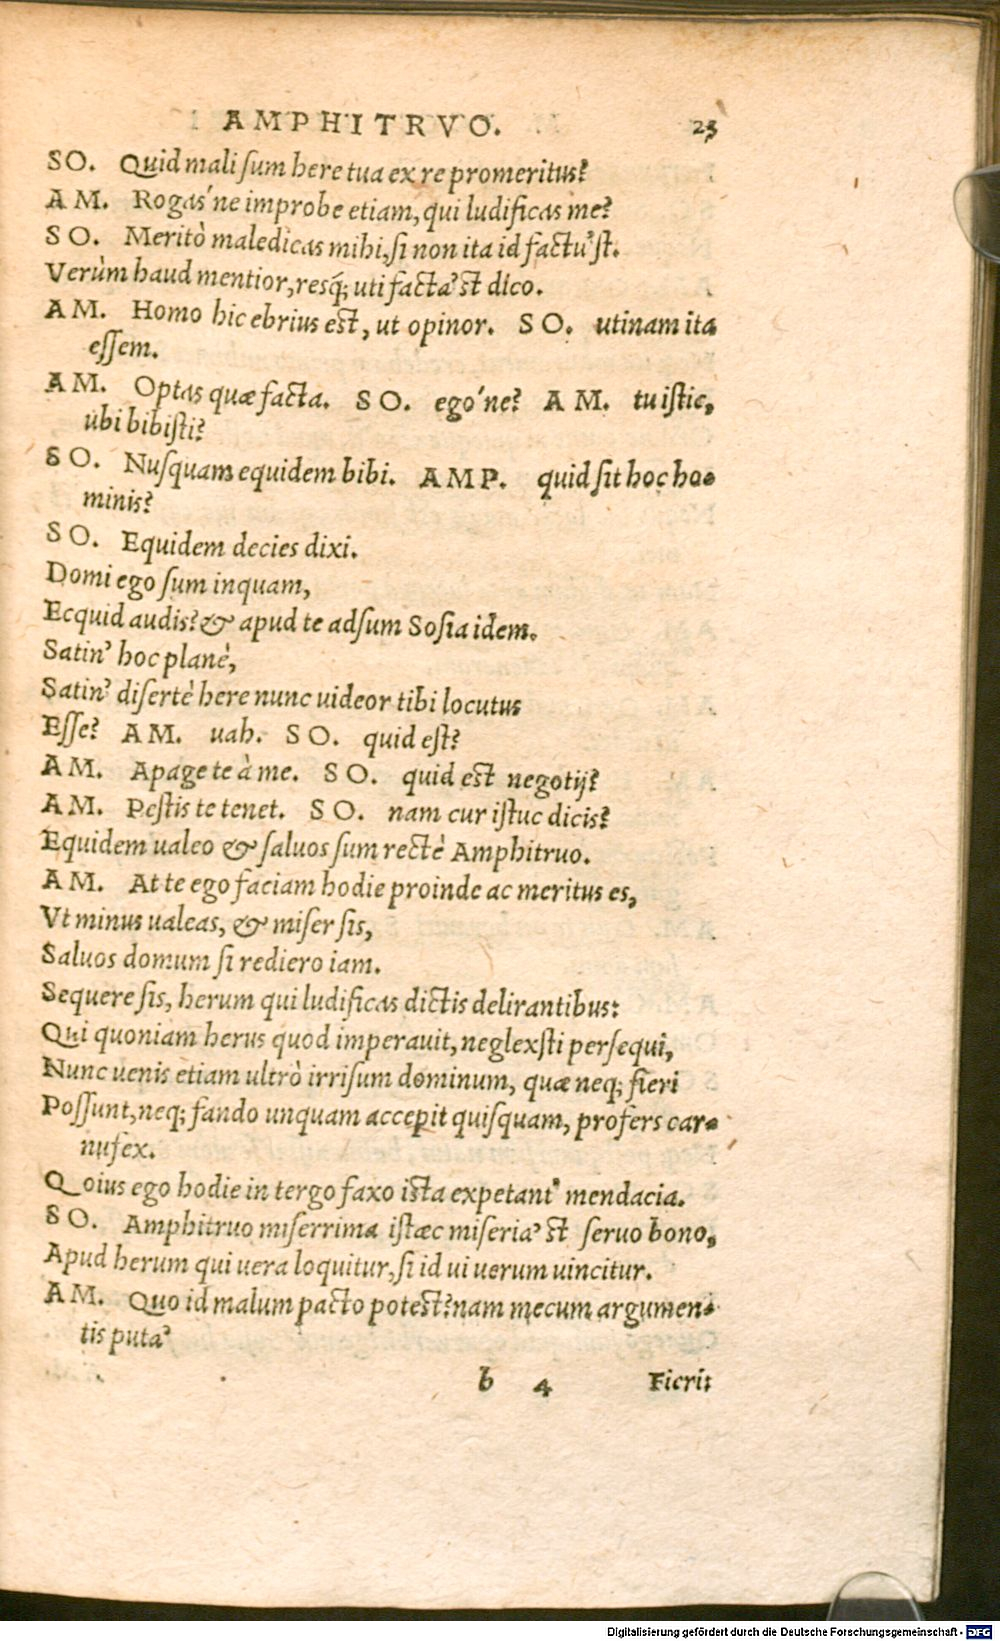 AMPHITRVO. 23
SO. Quid mali ſum here tua ex re promeritus?
AM. Rogas´ne improbe etiam, qui ludificas me?
SO. Meritò maledicas mihi, ſi non ita id factu'ſt.
Verùm haud mentior, resq́; uti facta'ſt dico.
AM. Homo hic ebrius eſt, ut opinor. SO. utinam ita
eſſem.
AM. Optas quæ facta. SO. ego´ne? AM. tu iſtic,
ubi bibiſti?
SO. Nuſquam equidem bibi. AMP. quid ſit hoc ho-
minis?
SO. Equidem decies dixi.
Domi ego ſum inquam,
Ecquid audis? & apud te adſum Soſia idem.
Satin' hoc planè,
Satin' diſertè here nunc uideor tibi locutus
Eſſe? AM. uah. SO. quid eſt?
AM. Apage te à me. SO. quid eſt negotij?
AM. Peſtis te tenet. SO. nam cur iſtuc dicis?
Equidem ualeo & ſaluos ſum rectè Amphitruo.
AM. At te ego faciam hodie proinde ac meritus es,
Vt minus ualeas, & miſer ſis,
Saluos domum ſi rediero iam.
Sequere ſis, herum qui ludificas dictis delirantibus:
Qui quoniam herus quod imperauit, neglexſti perſequi,
Nunc uenis etiam ultrò irriſum dominum, quæ neq; fieri
Poſſunt, neq; fando unquam accepit quiſquam, profers car-
nufex.
Quoius ego hodie in tergo faxo iſta expetant' mendacia.
SO. Amphitruo miſerrima iſtæc miſeria'ſt ſeruo bono,
Apud herum qui uera loquitur, ſi id ui uerum uincitur.
AM. Quo id malum pacto poteſt? nam mecum argumen-
tis puta'
b 4 Fierit
Digitalisierung gefördert durch die Deutsche Forschungsgemeinschaft - DFG